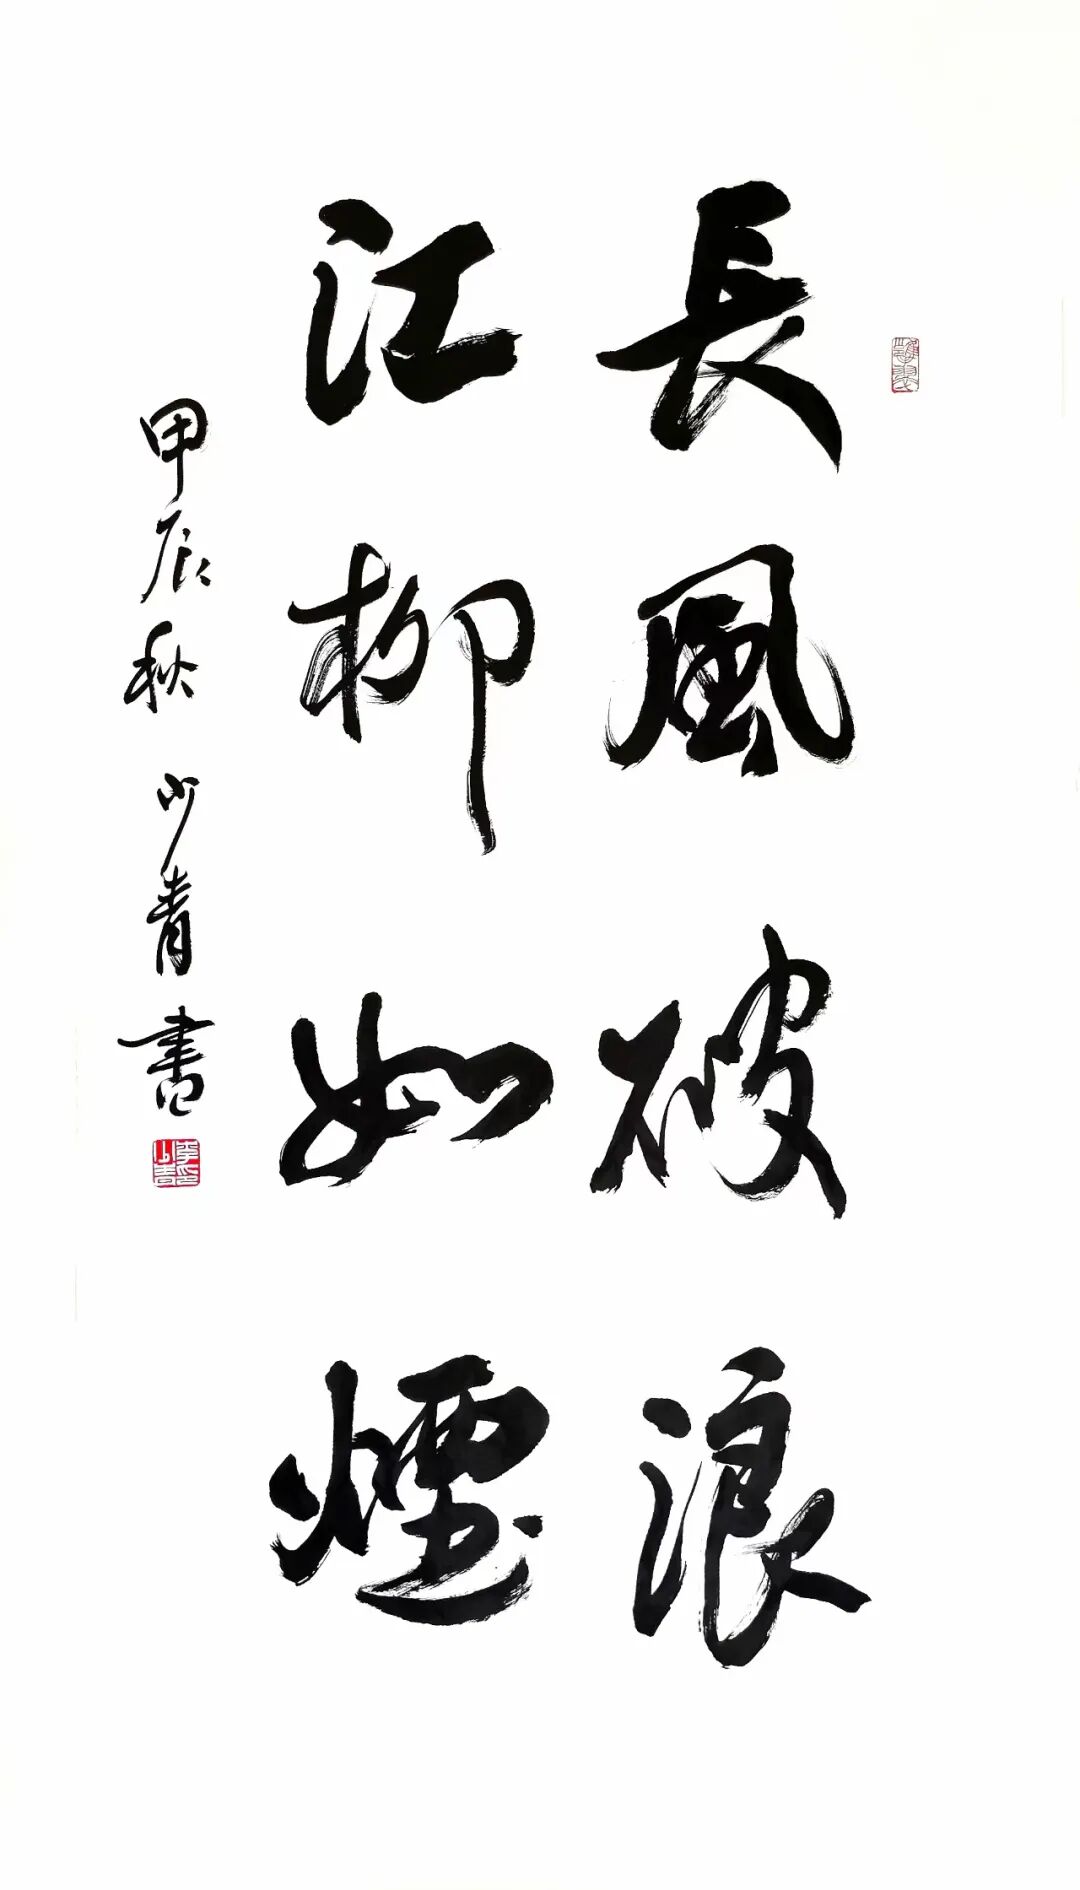 長風破浪
江柳如煙
甲辰秋 少青書